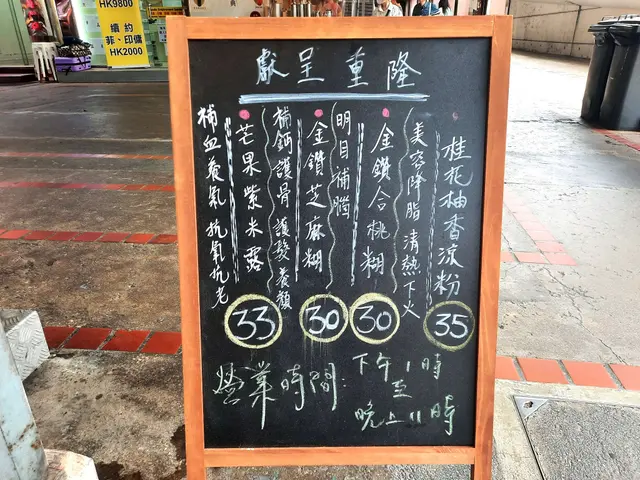 HK9800
續約
菲、印傭
HK2000
隆重呈獻
桂花柚香涼粉
35
美容降脂 清熱下火
金鑽合桃糊
30
明目補腦
金鑽芝麻糊
30
補鈣護骨 護髮養顏
芒果紫米露
33
補血養氣 抗氧抗老
營業時間：
下午1時
至
晚上11時